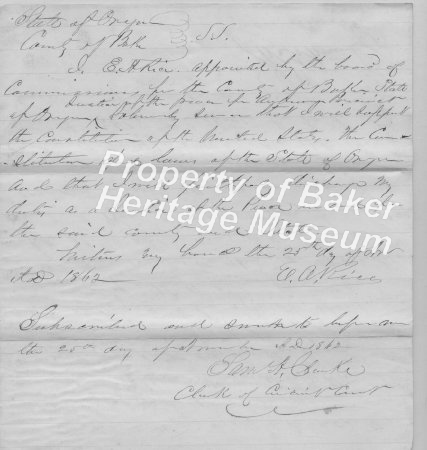 State of Oregon
County of Baker } S.S.
I, E. A. Rice appointed by the board of
Commissioners for the County of Baker State
Justice of the Peace for Precinct
of Oregon Solemnly Swear that I will support
the Constitution of the United States. The Con-
stitution laws of the State of Oregon
and that I will my
duties as a of the Peace
the said county and
Property of Baker
Heritage Museum
Witness my hand the 25th day of Nov
A.D. 1862 E. A. Rice
Subscribed and sworn to before me
the 25th day of November A.D. 1862
Sam
Clerk of Circuit Court